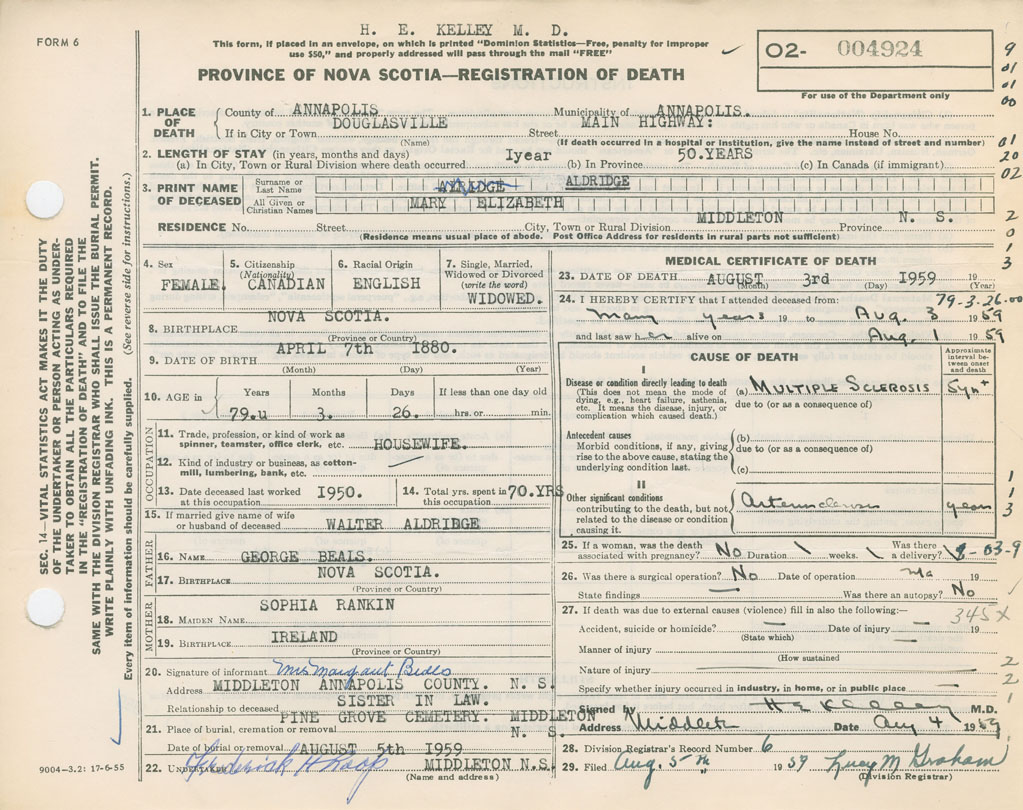 H. E. KELLEY M. D.
FORM 6
This form, if placed in an envelope, on which is printed "Dominion Statistics—Free, penalty for improper
use $50," and properly addressed will pass through the mail "FREE"
O2- 004924
For use of the Department only
PROVINCE OF NOVA SCOTIA—REGISTRATION OF DEATH
9
01
01
00
01
20
02
2
0
1
3
1. PLACE OF DEATH County of ANNAPOLIS Municipality of ANNAPOLIS.
If in City or Town DOUGLASVILLE Street MAIN HIGHWAY: House No.
(Name) (If death occurred in a hospital or institution, give the name instead of street and number)
2. LENGTH OF STAY (in years, months and days)
(a) In City, Town or Rural Division where death occurred Iyear (b) In Province 50.YEARS (c) In Canada (if immigrant)
3. PRINT NAME OF DECEASED Surname or Last Name ALDRIDGE
All Given or Christian Names MARY ELIZABETH
RESIDENCE No. Street City, Town or Rural Division MIDDLETON Province N. S.
(Residence means usual place of abode. Post Office Address for residents in rural parts not sufficient)
SEC. 14—VITAL STATISTICS ACT MAKES IT THE DUTY
OF THE UNDERTAKER OR PERSON ACTING AS UNDER-
TAKER TO OBTAIN ALL THE PARTICULARS REQUIRED
IN THE "REGISTRATION OF DEATH" AND TO FILE THE
SAME WITH THE DIVISION REGISTRAR WHO SHALL ISSUE THE BURIAL PERMIT.
WRITE PLAINLY WITH UNFADING INK. THIS IS A PERMANENT RECORD.
Every item of information should be carefully supplied. (See reverse side for instructions.)
4. Sex FEMALE.
5. Citizenship (Nationality) CANADIAN
6. Racial Origin ENGLISH
7. Single, Married, Widowed or Divorced (write the word) WIDOWED.
8. BIRTHPLACE NOVA SCOTIA.
(Province or Country)
9. DATE OF BIRTH APRIL 7th 1880.
(Month) (Day) (Year)
10. AGE in Years Months Days If less than one day old
79. 3. 26. hrs. or min.
OCCUPATION
11. Trade, profession, or kind of work as spinner, teamster, office clerk, etc. HOUSEWIFE.
12. Kind of industry or business, as cotton-mill, lumbering, bank, etc.
13. Date deceased last worked at this occupation 1950.
14. Total yrs. spent in this occupation 70.YRS
15. If married give name of wife or husband of deceased WALTER ALDRIDGE
FATHER
16. NAME GEORGE BEALS.
17. BIRTHPLACE NOVA SCOTIA.
(Province or Country)
MOTHER
18. MAIDEN NAME SOPHIA RANKIN
19. BIRTHPLACE IRELAND
(Province or Country)
20. Signature of informant Mrs Margaret
Address MIDDLETON ANNAPOLIS COUNTY. N. S.
Relationship to deceased SISTER IN LAW.
21. Place of burial, cremation or removal PINE GROVE CEMETERY. MIDDLETON N. S.
Date of burial or removal AUGUST 5th 1959
22. UNDERTAKER Frederick H Roop MIDDLETON N.S.
(Name and address)
9004—3.2: 17-6-55
MEDICAL CERTIFICATE OF DEATH
23. DATE OF DEATH AUGUST 3rd 1959 19
(Month) (Day) (Year)
79-3-26.00
24. I HEREBY CERTIFY that I attended deceased from:
many years 19 to Aug. 3 1959
and last saw her alive on Aug. 1 1959
CAUSE OF DEATH
Approximate interval between onset and death
I
Disease or condition directly leading to death
(This does not mean the mode of dying, e.g., heart failure, asthenia, etc. It means the disease, injury, or complication which caused death.)
(a) MULTIPLE SCLEROSIS 5yr+
due to (or as a consequence of)
Antecedent causes
Morbid conditions, if any, giving rise to the above cause, stating the underlying condition last.
(b)
due to (or as a consequence of)
(c)
II
Other significant conditions contributing to the death, but not related to the disease or condition causing it.
years
1
1
3
25. If a woman, was the death associated with pregnancy? No Duration weeks. Was there a delivery?
26. Was there a surgical operation? No Date of operation 19
State findings Was there an autopsy? No
27. If death was due to external causes (violence) fill in also the following:— 345X
Accident, suicide or homicide? Date of injury 19
(State which)
Manner of injury
(How sustained
Nature of injury
Specify whether injury occurred in industry, in home, or in public place
2
2
1
Signed by H E Kelley M.D.
Address Middleton Date Aug 4 1959
28. Division Registrar's Record Number 6
29. Filed Aug. 5-th 1959 Lucy M Graham
(Division Registrar)